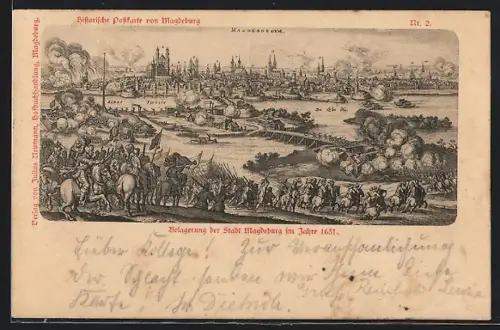 Historische Postkarte von Magdeburg
Nr. 2.
MAGDEBURGK
Verlag von Julius Neumann, Hofbuchhandlung, Magdeburg.
Belagerung der Stadt Magdeburg im Jahre 1631.
Lieber College! Zur Veranschaulichung
der Schlacht senden wir Ihnen diese
Karte. Dietrich.